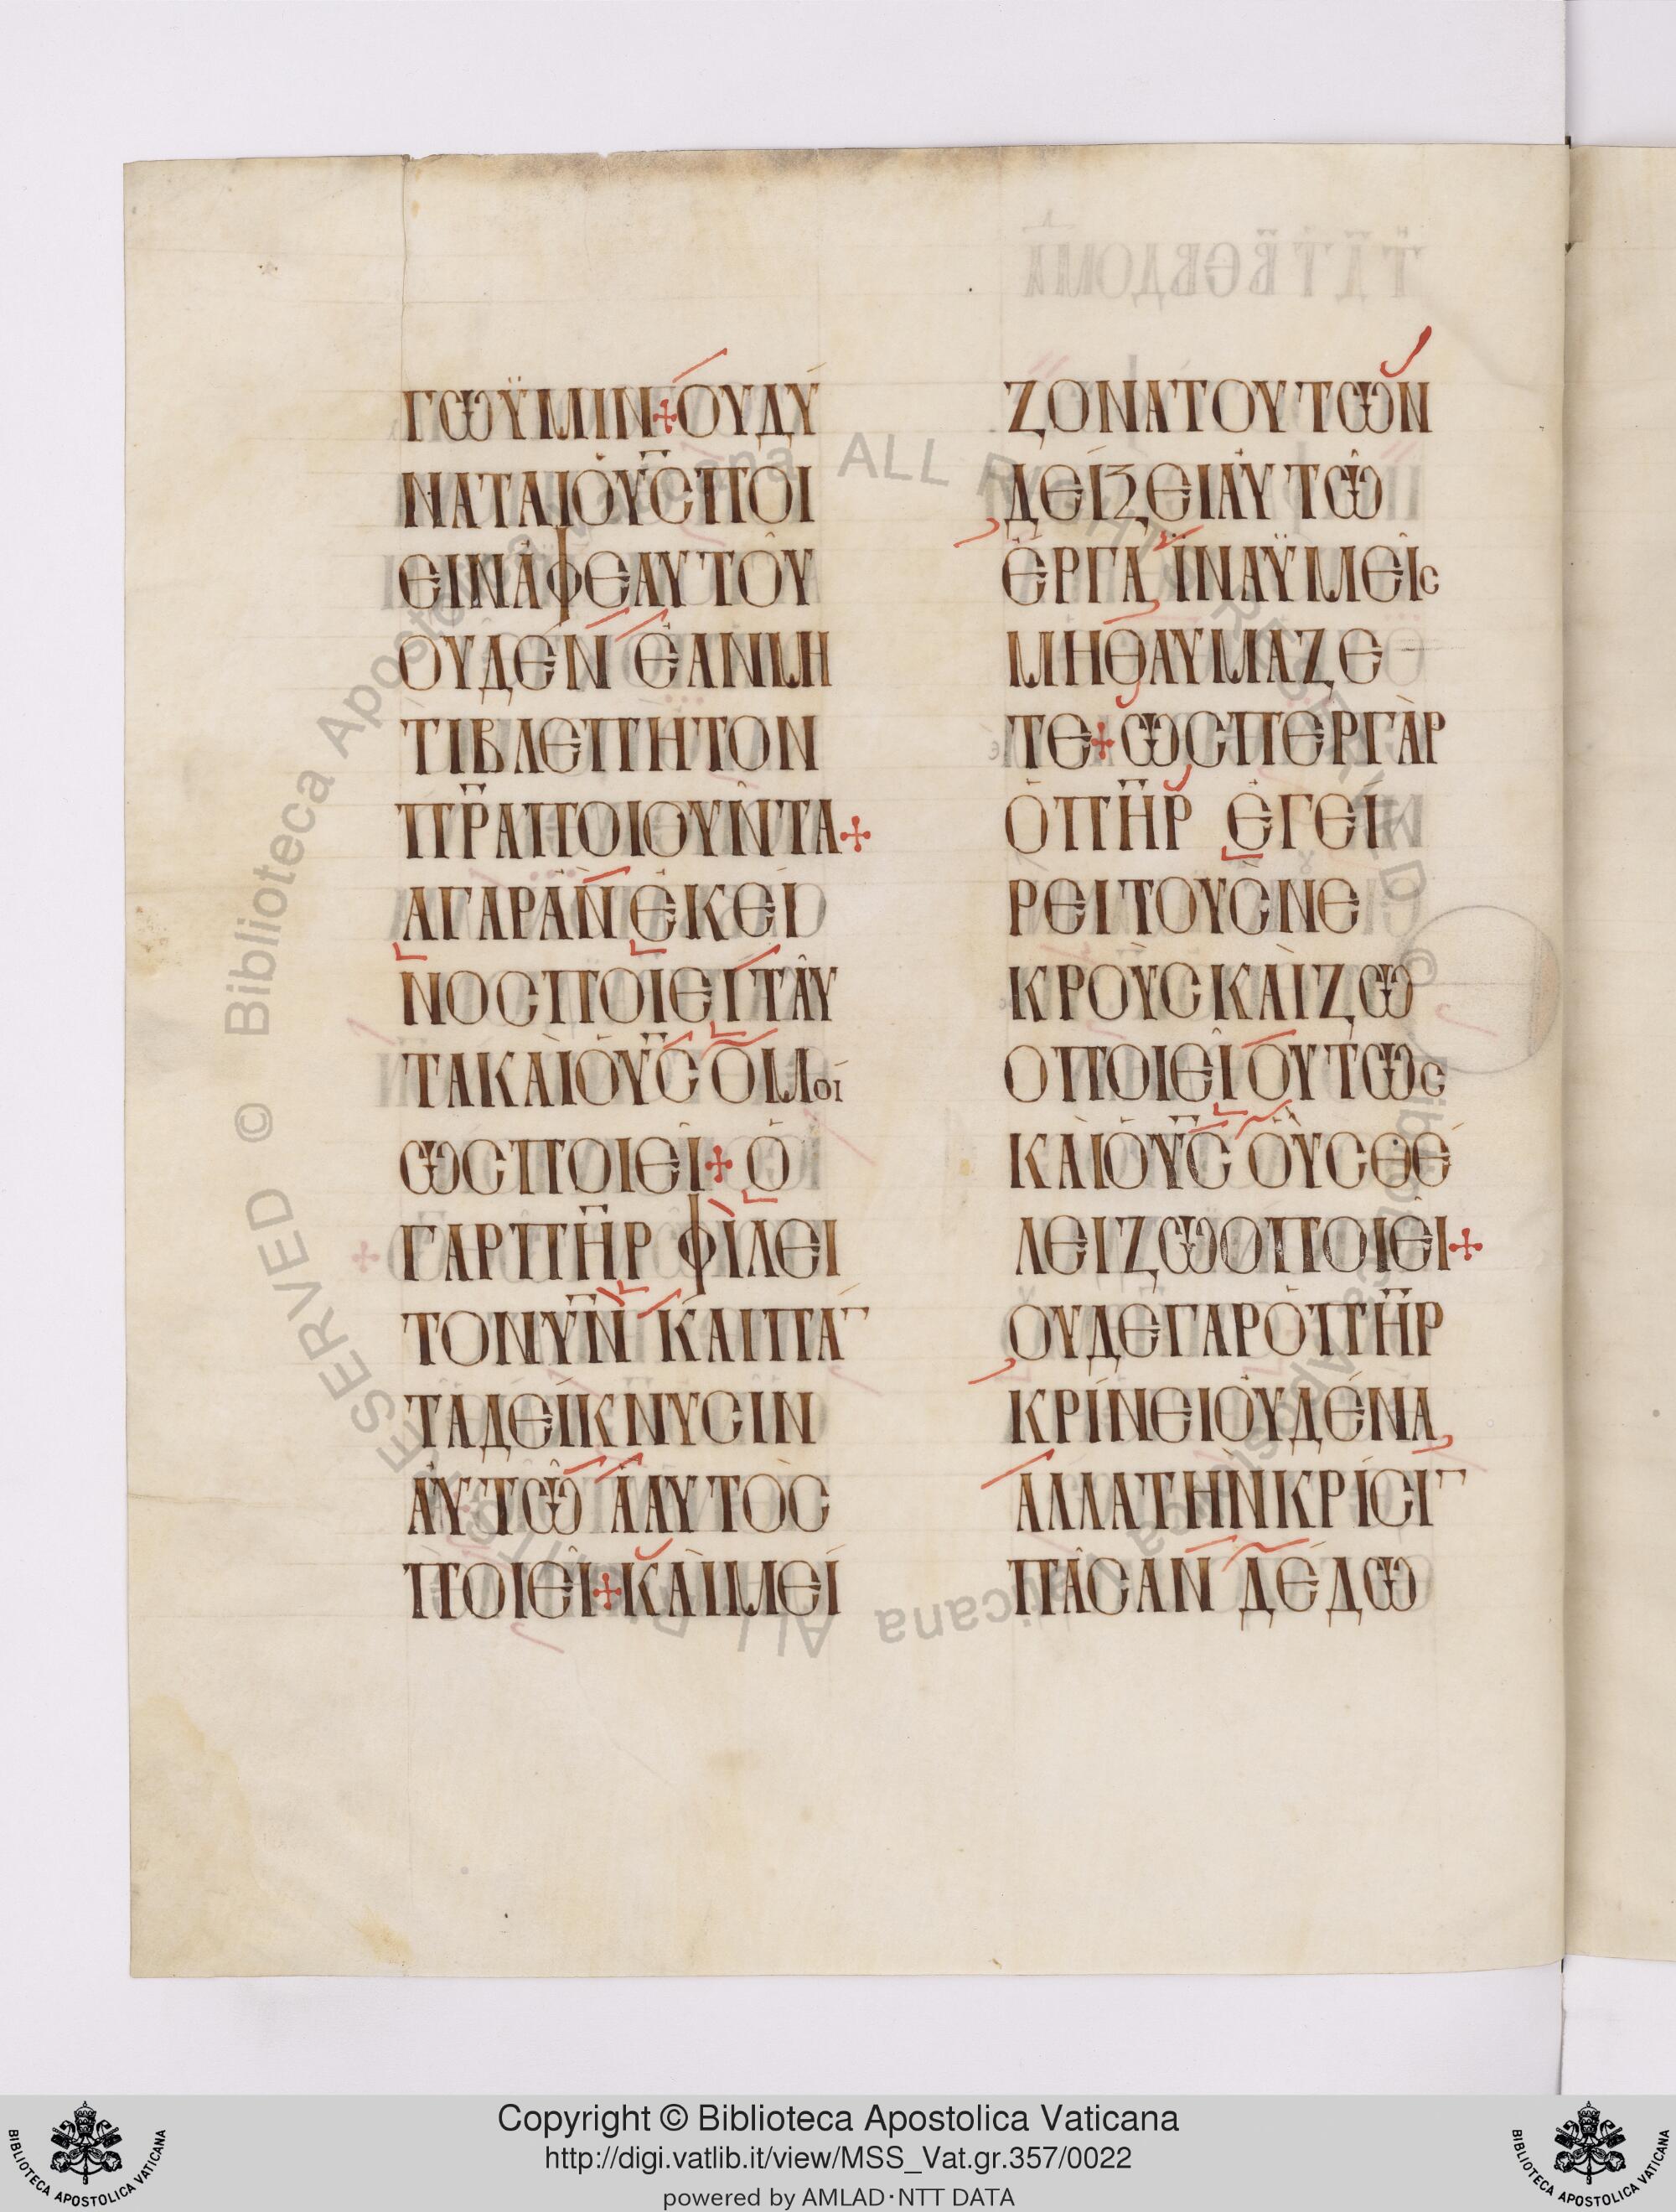 ΓΩΫΜΙΝ+ΟΥΔΎ
ΝΑΤΑΙὉΥ͞ΣΠΟΙ
ΕΙΝἈΦΕΑΥΤΟῪ
ΟΥΔΕΝ ἘΑΝΜΗ
ΤΙΒΛΕΠΗΤΟΝ
Π͞ΡΑΠΟΙΟΥΝΤΑ+
ΑΓΑΡΑΝ ἘΚΕΙ
ΝΟΣΠΟΙΕΙΤΑΥ
ΤΑΚΑΙὉΥ͞Σ ΟΜΟΙ
ΩΣΠΟΙΕΙ+Ὁ
ΓΑΡΠ͞ΗΡ ΦΙΛΕΙ
ΤΟΝΥ͞Ν ΚΑΙΠΑ¯
ΤΑΔΕΙΚΝΥΣΙΝ
ΑΥΤΩ ἉΑΥΤΟΣ
ΠΟΙΕΙ+ΚΑΙΜΕΙ
ΖΟΝΑΤΟΥΤΩΝ
ΔΕΙΞΕΙΑΥΤΩ
ΕΡΓΑ ΪΝΑΫΜΕΙΣ
ΜΗΘΑΥΜΑΖΕ
ΤΕ+ΩΣΠΕΡΓΑΡ
ὉΠ͞ΗΡ ἘΓΕΙ
ΡΕΙΤΟΥΣΝΕ
ΚΡΟΥΣΚΑΙΖΩ
ΟΠΟΙΕΙΟΥΤΩΣ
ΚΑΙὉΥ͞Σ ΟΥΣΘΕ
ΛΕΙΖΩΟΠΟΙΕΙ+
ΟΥΔΕΓΑΡὉΠ͞ΗΡ
ΚΡΙΝΕΙΟΥΔΕΝΑ
ΑΛΛΑΤΗΝΚΡΙΣΙ¯
ΠΑΣΑΝ ΔΕΔΩ
Copyright © Biblioteca Apostolica Vaticana
http://digi.vatlib.it/view/MSS_Vat.gr.357/0022
powered by AMLAD·NTT DATA
BIBLIOTECA APOSTOLICA VATICANA
BIBLIOTECA APOSTOLICA VATICANA